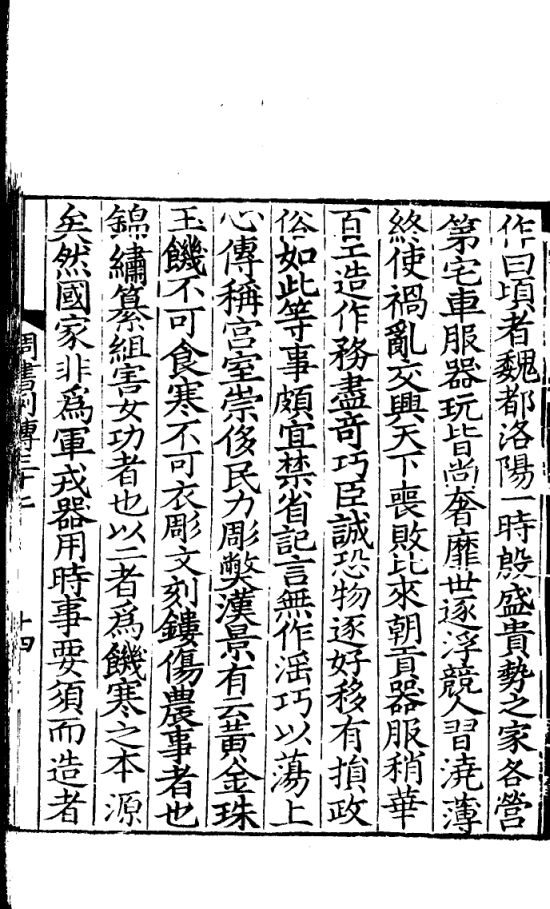 作曰頃者魏都洛陽一時殷盛貴勢之家各營
第宅車服器玩皆尚奢靡世逐浮競人習澆薄
終使禍亂交興天下喪敗比來朝貢器服稍華
百工造作務盡奇巧臣誠恐物逐好移有損政
俗如此等事頗宜禁省記言無作淫巧以蕩上
心傳稱宫室崇侈民力彫弊漢景有云黄金珠
玉饑不可食寒不可衣彫文刻鏤傷農事者也
錦繡纂組害女功者也以二者爲饑寒之本源
矣然國家非爲軍戎器用時事要須而造者
周書列傳三十二
十四